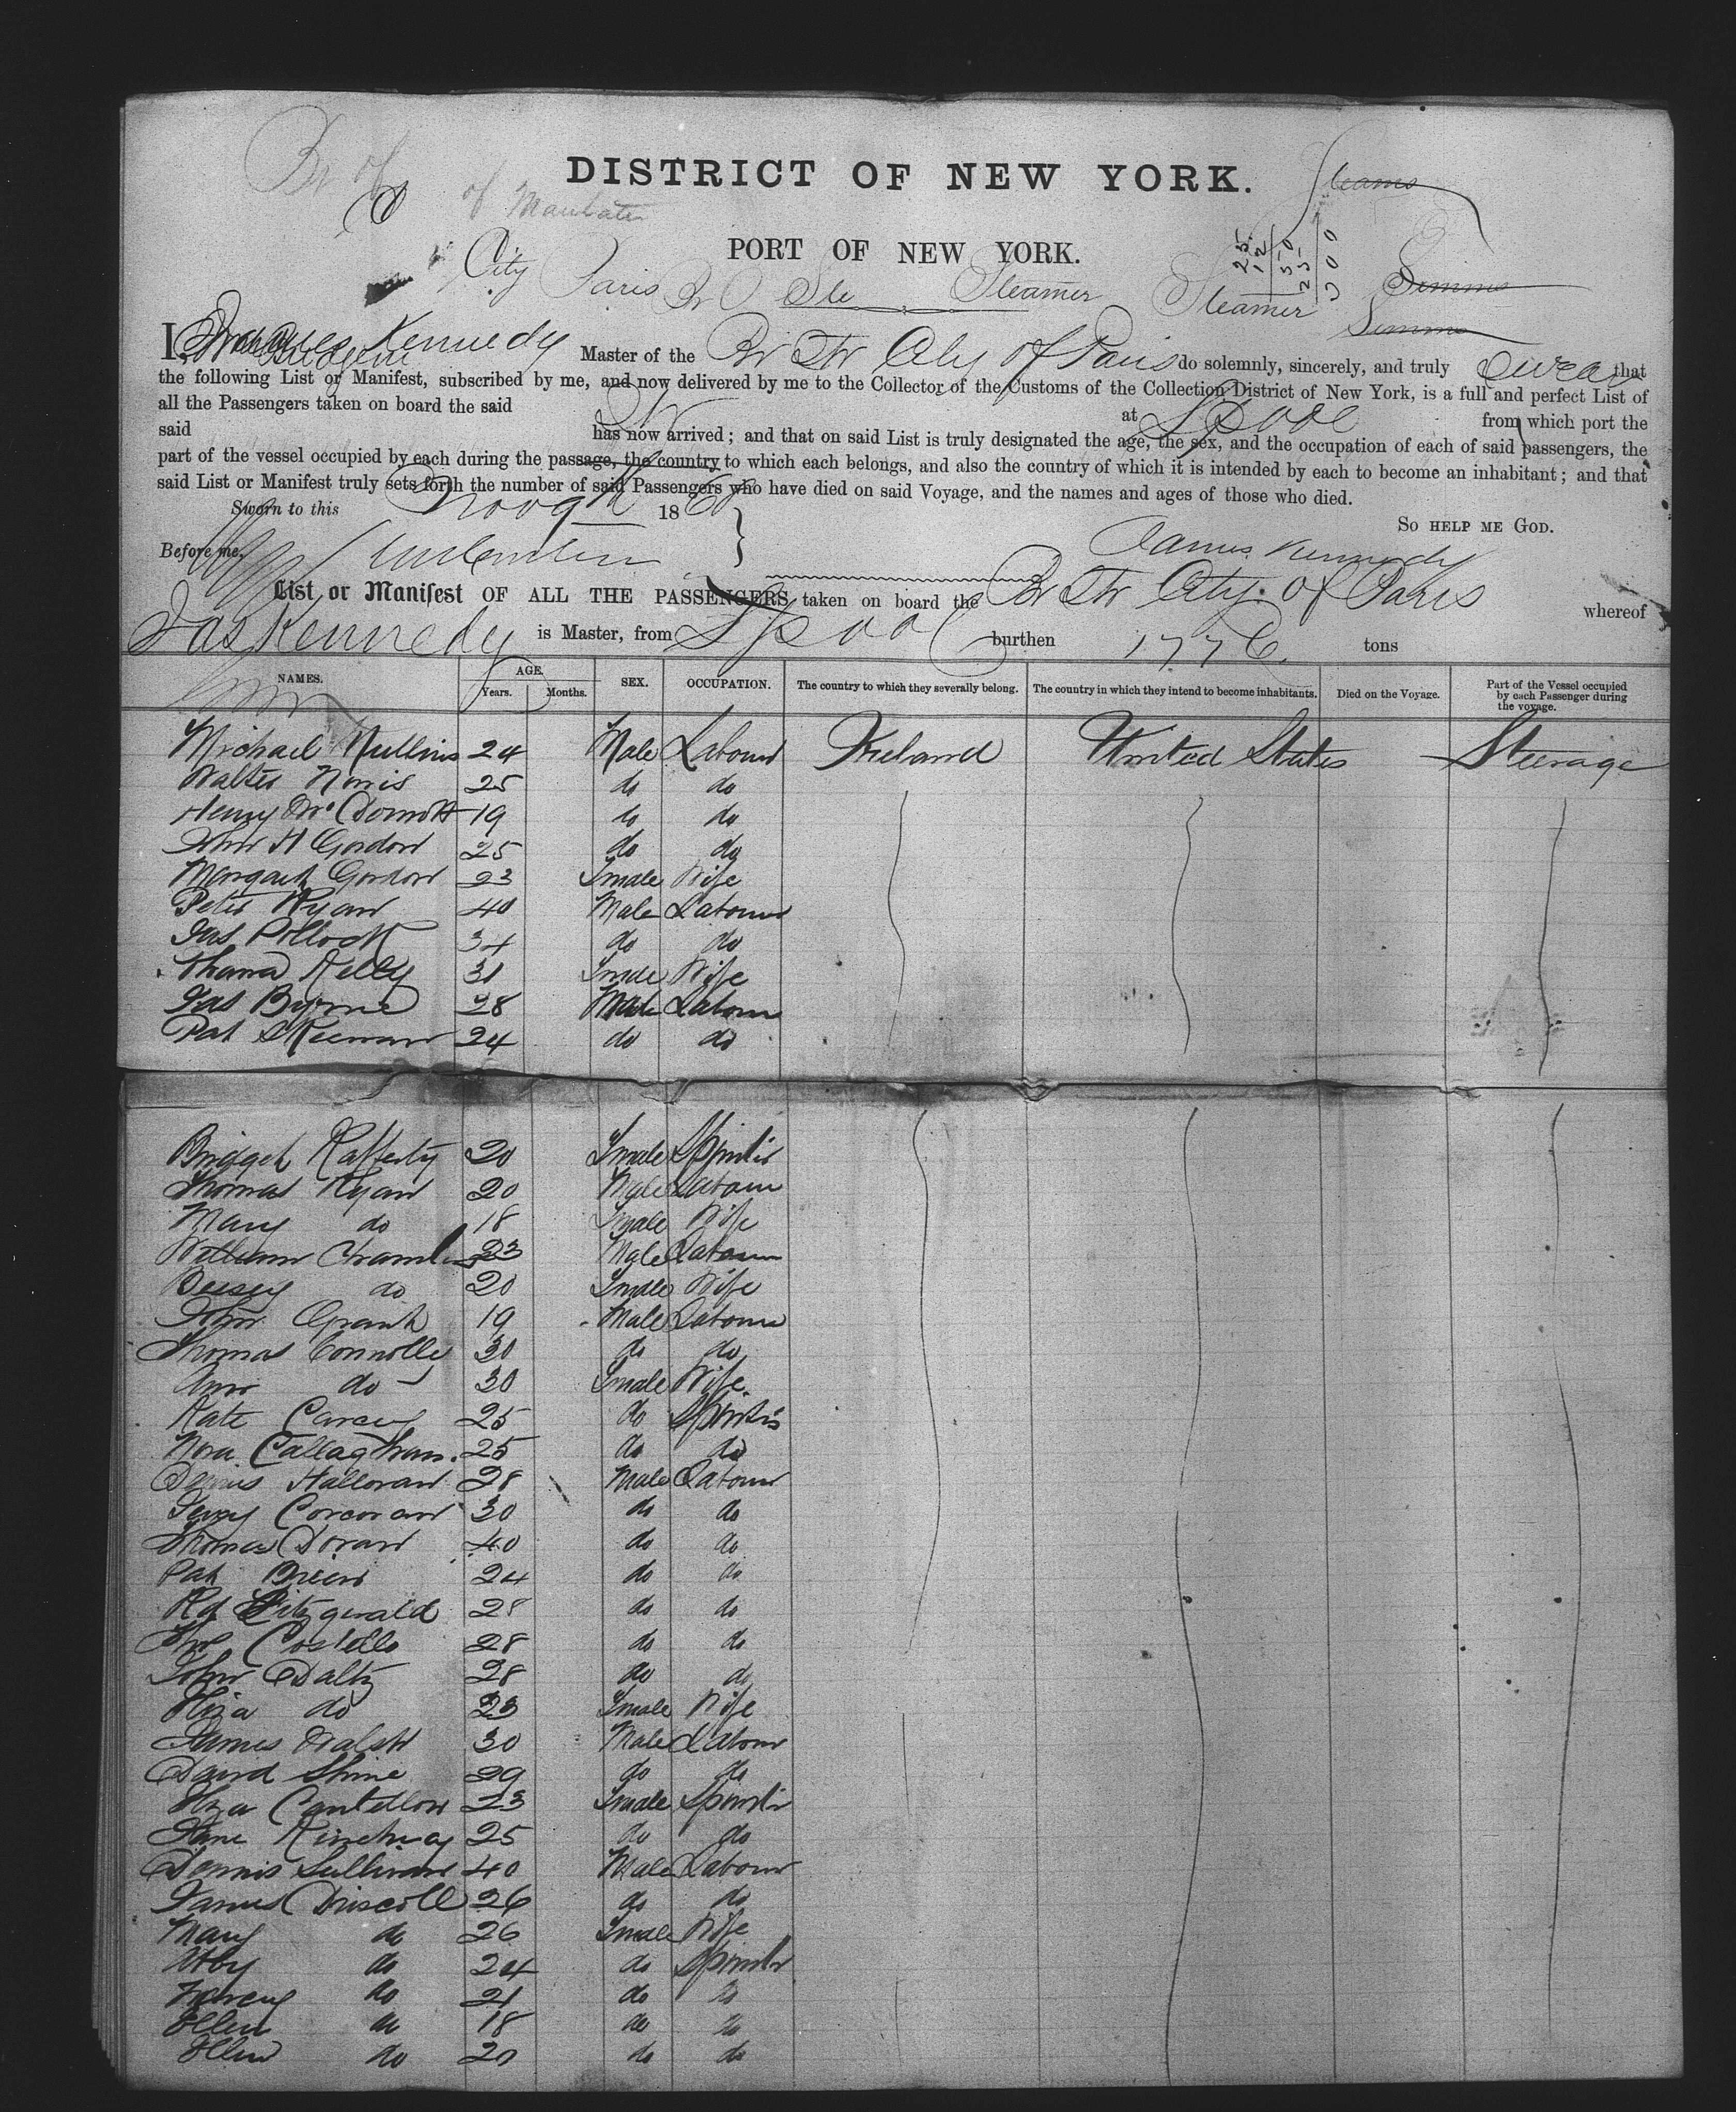 DISTRICT OF NEW YORK.
PORT OF NEW YORK.
City Paris Br Ste Steamer Steamer
25
12
50
25
300
I, James Kennedy Master of the Br Str City of Paris do solemnly, sincerely, and truly swear that
the following List or Manifest, subscribed by me, and now delivered by me to the Collector of the Customs of the Collection District of New York, is a full and perfect List of
all the Passengers taken on board the said Str at Lpool from which port the
said has now arrived; and that on said List is truly designated the age, the sex, and the occupation of each of said passengers, the
part of the vessel occupied by each during the passage, the country to which each belongs, and also the country of which it is intended by each to become an inhabitant; and that
said List or Manifest truly sets forth the number of said Passengers who have died on said Voyage, and the names and ages of those who died.
Sworn to this 186
So help me God.
Before me, James Kennedy
List or Manifest OF ALL THE PASSENGERS taken on board the Br Str City of Paris whereof
Jas Kennedy is Master, from Lpool burthen 1776 tons
NAMES. AGE. Years. Months. SEX. OCCUPATION. The country to which they severally belong. The country in which they intend to become inhabitants. Died on the Voyage. Part of the Vessel occupied by each Passenger during the voyage.
Michael Mullins 24 Male Labour Ireland United States Steerage
Walter Norris 25 do do
Henry McDermott 19 do do
John H Gordon 25 do do
Margaret Gordon 23 Fmale Wife
Peter Ryan 40 Male Labour
Jas Pollock 34 do do
Kelly 31 Fmale Wife
Jas Byrne 28 Male Labour
Pat 24 do do
Bridget Rafferty 20 Fmale Spinster
Thomas Ryan 20 Male Labour
Mary do 18 Fmale Wife
William 23 Male Labour
Bessey do 20 Fmale Wife
John Grant 19 Male Labour
Thomas Connolly 30 do do
Ann do 30 Fmale Wife
Kate Carey 25 do Spinster
Nora Callaghan 25 do do
Dennis Halloran 28 Male Labour
Corcoran 30 do do
Thomas Doran 40 do do
Pat Brien 24 do do
Rd Fitzgerald 28 do do
Costello 28 do do
John Dalty 28 do do
Eliza do 23 Fmale Wife
James Walsh 30 Male Labour
David Shine 29 do do
Eliza Cantillon 23 Fmale Spinster
Jane 25 do do
Dennis Sullivan 40 Male Labour
James Driscoll 26 do do
Mary do 26 Fmale Wife
Abby do 24 do Spinster
do 21 do do
Ellen do 18 do do
Ellen do 20 do do